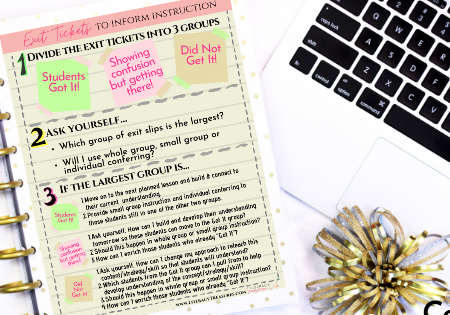 Exit Tickets TO INFORM INSTRUCTION
1 DIVIDE THE EXIT TICKETS INTO 3 GROUPS
Students
Got It!
Showing
confusion
but getting
there!
Did Not
Get It!
2 ASK YOURSELF...
• Which group of exit slips is the largest?
• Will I use whole group, small group or
individual conferring?
3 IF THE LARGEST GROUP IS...
Students
Got It!
1.Move on to the next planned lesson and build & connect to
their current understanding.
2.Provide small group instruction and individual conferring to
those students still in one of the other two groups.
Showing
confusion
but getting
there!
1.Ask yourself: How can I build and develop their understanding
tomorrow so these students can move to the Got It group?
2.Should this happen in whole group or small group instruction?
3.How can I enrich those students who already "Got It"?
Did
Not
Get It!
1.Ask yourself: How can I change my approach to reteach this
content/strategy/skill so that students will understand?
2.Which students from the Got It group can I pull from to help
develop understanding of the concept/strategy/skill?
3.Should this happen in whole group or small group instruction?
4.How can I enrich those students who already "Got It"?
WWW.LITERACYTREASURES.COM
caps lock
shift
fn
control
option
command
Q
W
E
A
S
D
F
Z
X
C
V